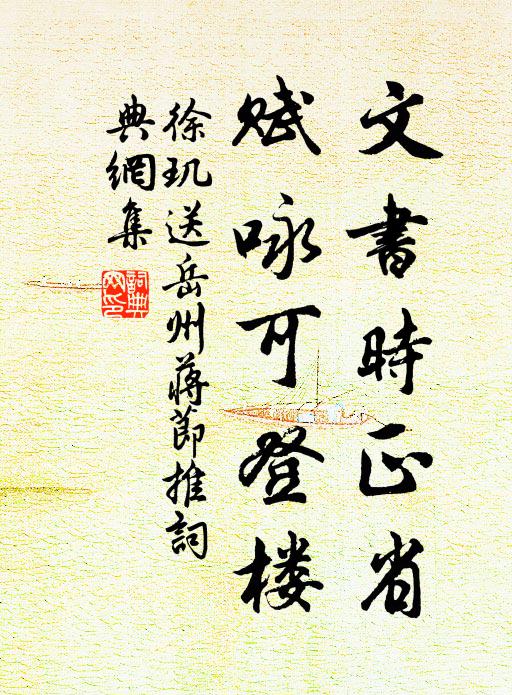 文書時正省
賦咏可登楼
徐玑送岳州蔣節推詞
典網集
詞典网印